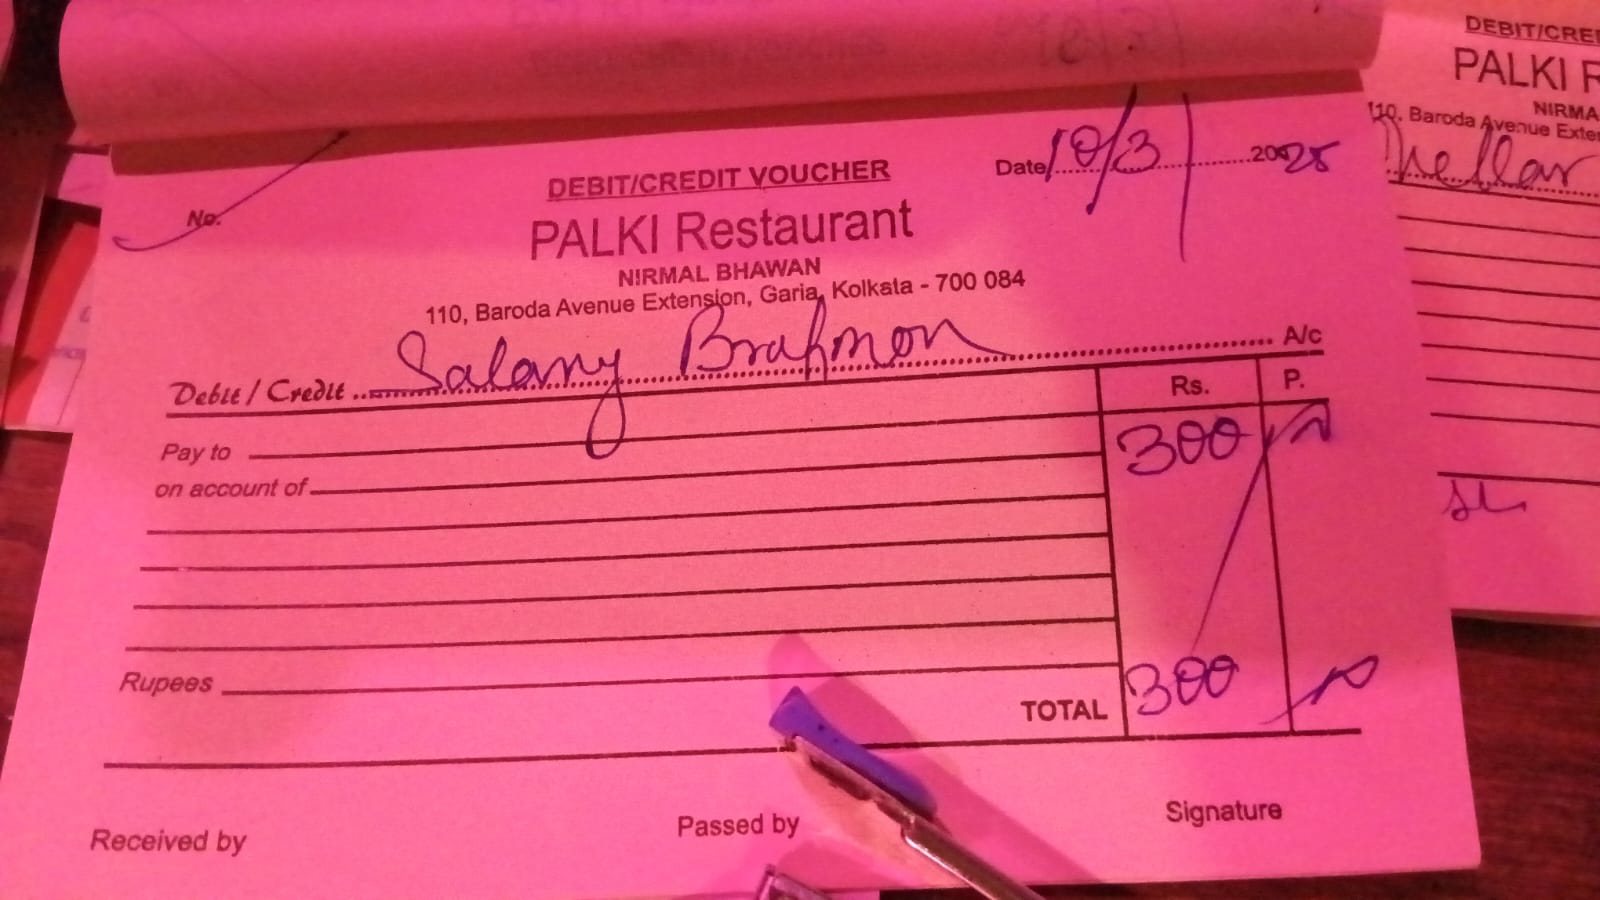 DEBIT/CREDIT VOUCHER
No.
Date 10/3/ 2025
PALKI Restaurant
NIRMAL BHAWAN
110, Baroda Avenue Extension, Garia, Kolkata - 700 084
Debit / Credit Salary Brahmon A/c
Rs. P.
Pay to 300
on account of
Rupees
TOTAL 300
Received by Passed by Signature
DEBIT/CRE
PALKI R
NIRMA
110, Baroda Avenue Exte